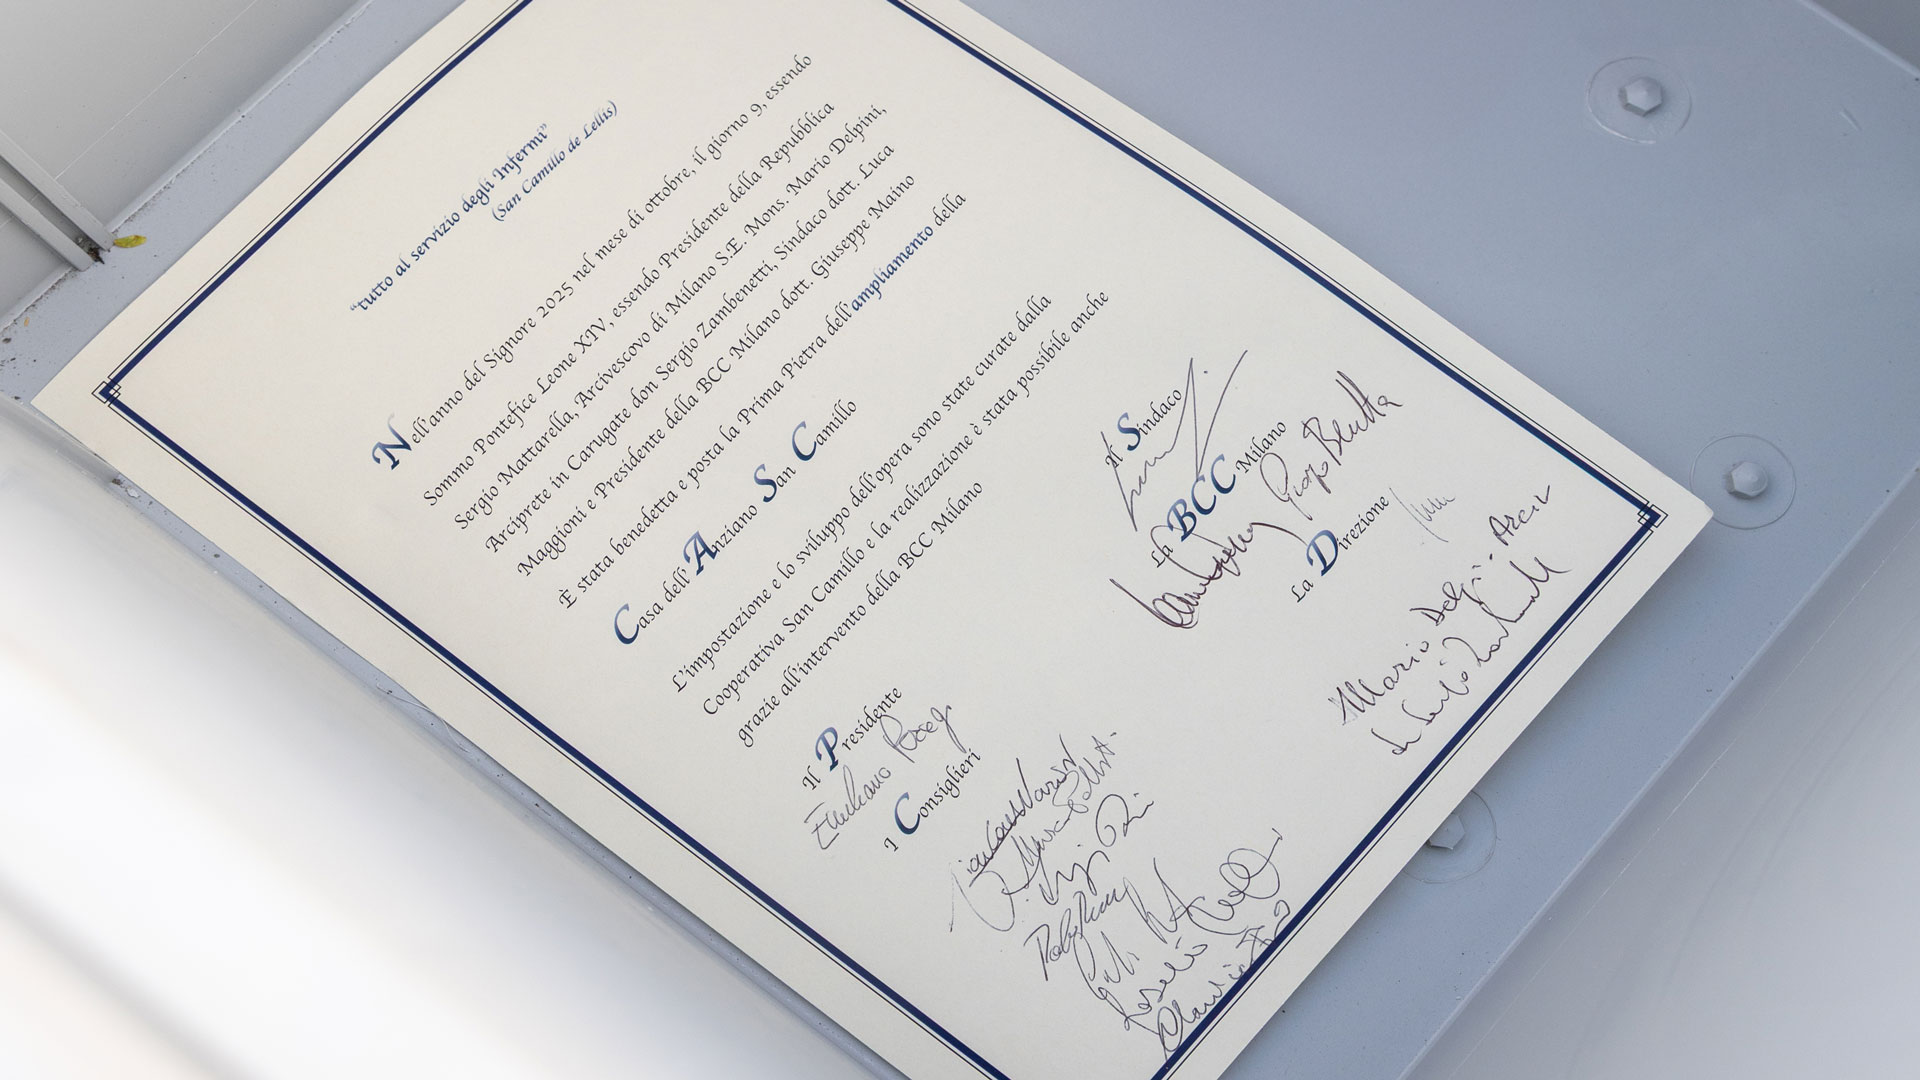 “tutto al servizio degli Infermi”
(San Camillo de Lellis)
Nell'anno del Signore 2025 nel mese di ottobre, il giorno 9, essendo
Sommo Pontefice Leone XIV, essendo Presidente della Repubblica
Sergio Mattarella, Arcivescovo di Milano S.E. Mons. Mario Delpini,
Arciprete in Carugate don Sergio Zambenetti, Sindaco dott. Luca
Maggioni e Presidente della BCC Milano dott. Giuseppe Maino
È stata benedetta e posta la Prima Pietra dell'ampliamento della
Casa dell'Anziano San Camillo
L'impostazione e lo sviluppo dell'opera sono state curate dalla
Cooperativa San Camillo e la realizzazione è stata possibile anche
grazie all'intervento della BCC Milano
Il Presidente
Emiliano
I Consiglieri
Il Sindaco
La BCC Milano
La Direzione
Mario Delpini